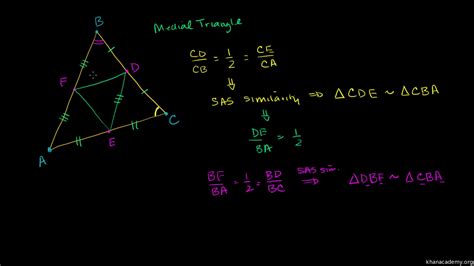 Medial Triangle
B
D
F
C
E
A
CD/CB = 1/2 = CE/CA
⇓
SAS similarity ⇒ △CDE ~ △CBA
⇓
DE/BA = 1/2
BF/BA = 1/2 = BD/BC SAS sim. ⇒ △DBF ~ △CBA
khanacademy.org